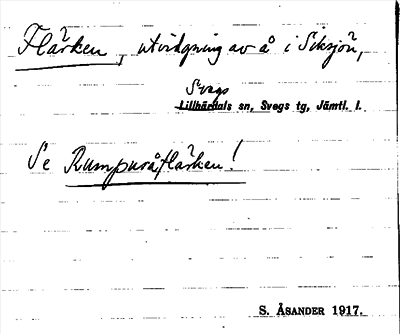 Flärken, utvidgning av å i Siksjön,
Svegs
Lillhärdals sn, Svegs tg, Jämtl. l.
Se Rumpuråflärken!
S. ÅSANDER 1917.